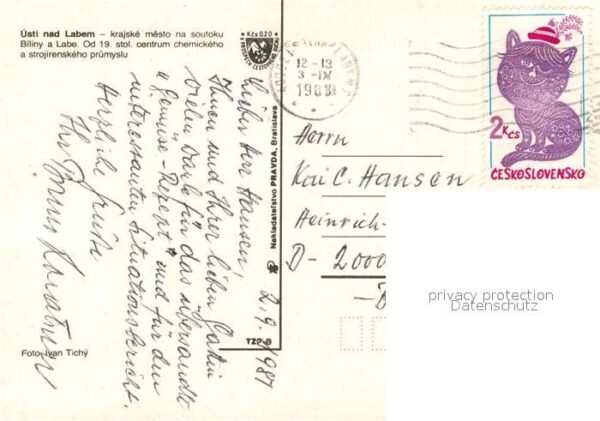 Ústí nad Labem – krajské město na soutoku
Bíliny a Labe. Od 19. stol. centrum chemického
a strojírenského průmyslu
Kčs 0,20
12-13
3-IX
1981
2 Kčs
ČESKOSLOVENSKO
2.9.1981
Lieber Herr Hansen,
Ihnen und Ihrer lieben Gattin
vielen Dank für das übersandte
"Gemüse-Rezept" und für den
interessanten Situationsbericht.
Herzliche Grüße
Ihr
Nakladatelství PRAVDA, Bratislava
TZP-B
Herrn
Kai C. Hansen
Heinrich-
D- 2000
privacy protection
Datenschutz
Foto: Ivan Tichý